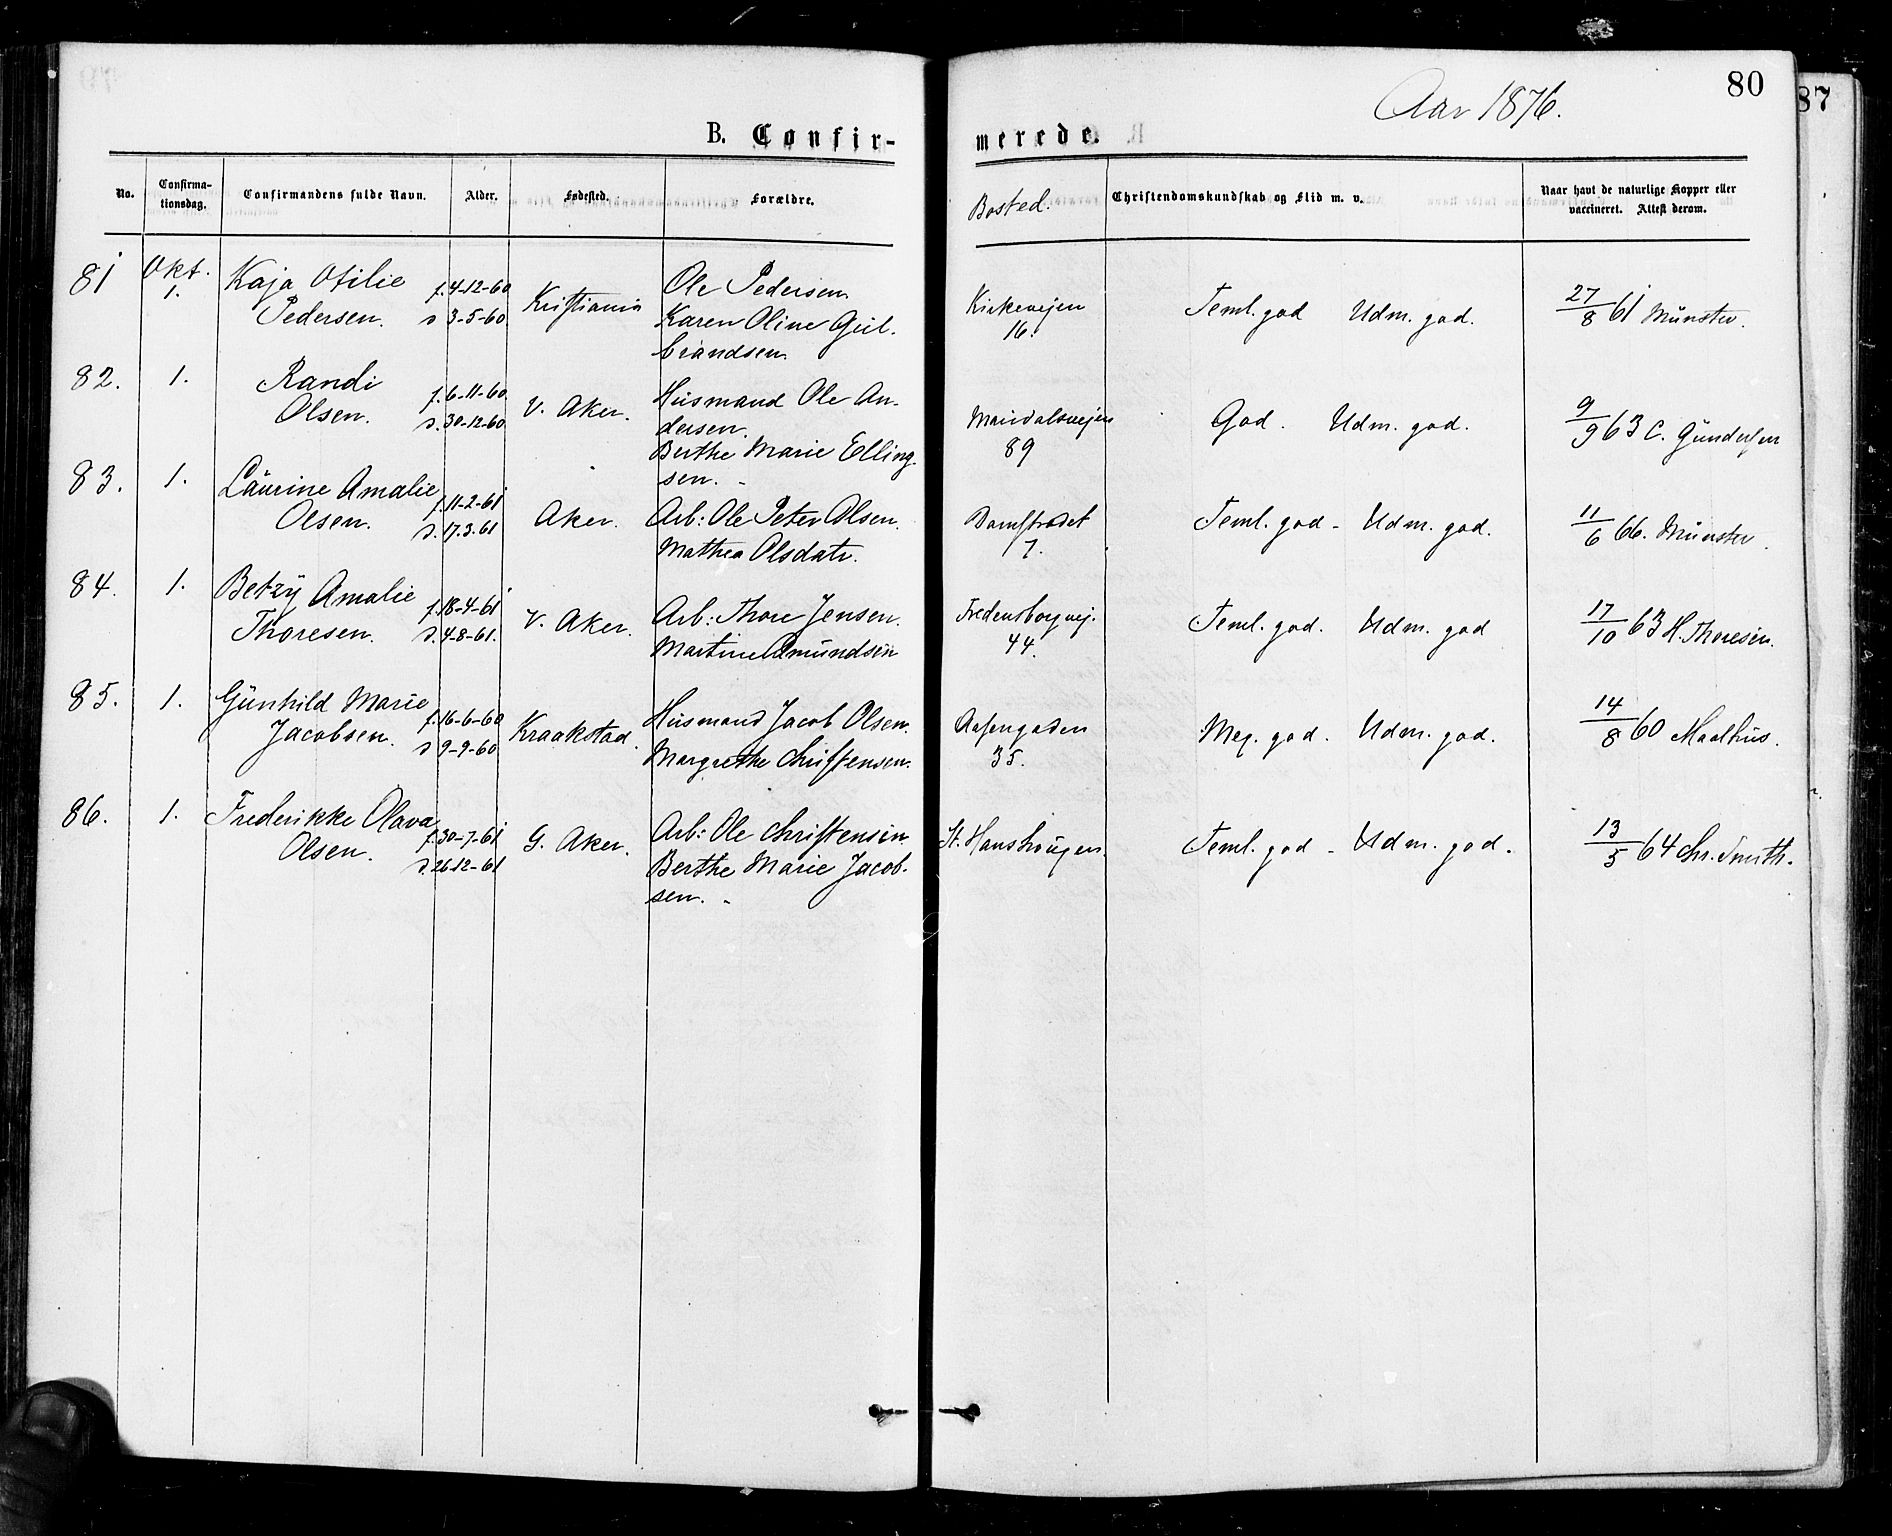 80
87
Aar 1876.
B. Confir-
merede.
No.
Confirma-
tionsdag.
Confirmandens fulde Navn.
Alder.
Fødested.
Forældre.
Bosted.
Christendomskundskab og Flid m. v.
Naar havt de naturlige Kopper eller
vaccineret. Attest derom.
81 Okt. 1. Kaja Otilie Pedersen. f. 4-12-60 d 3-5-60 Kristiania Ole Pedersen Karen Oline Gul-brandsen. Kirkevejen 16. Teml. god Udm. god. 27/8 61 Münster.
82. 1. Randi Olsen. f. 6-11-60. d. 30-12-60 V. Aker. Husmand Ole An-dersen. Berthe Marie Elling-sen. Maridalsvejen 89 God. Udm. god. 9/9 63 C. Gundersen
83. 1. Laurine Amalie Olsen. f. 11-2-61 d. 17.3.61 Aker. Arb: Ole Peter Olsen. Mathea Olsdatr. Damstredet 7. Teml. god - Udm. god. 11/6 66. Münster.
84. 1. Betzy Amalie Thoresen. f. 18-4-61 d. 4-8-61. V. Aker. Arb: Thore Jensen. Martine Amundsen Fredensborgvej. 44. Teml. god. Udm. god 17/10 63 H. Thoresen.
85. 1. Gunhild Marie Jacobsen. f. 16-6-60 d 9-9-60 Kraakstad. Husmand Jacob Olsen. Margrethe Christensen. Aasengaden 35. Meg. god. Udm. god. 14/8 60 Maalhus.
86. 1. Frederikke Olava Olsen. f. 30-7-61 d. 26-12-61 G. Aker. Arb: Ole Christensen Berthe Marie Jacob-sen. St. Hanshaugen. Teml. god - Udm. god. 13/5 64 Chr. Smith.